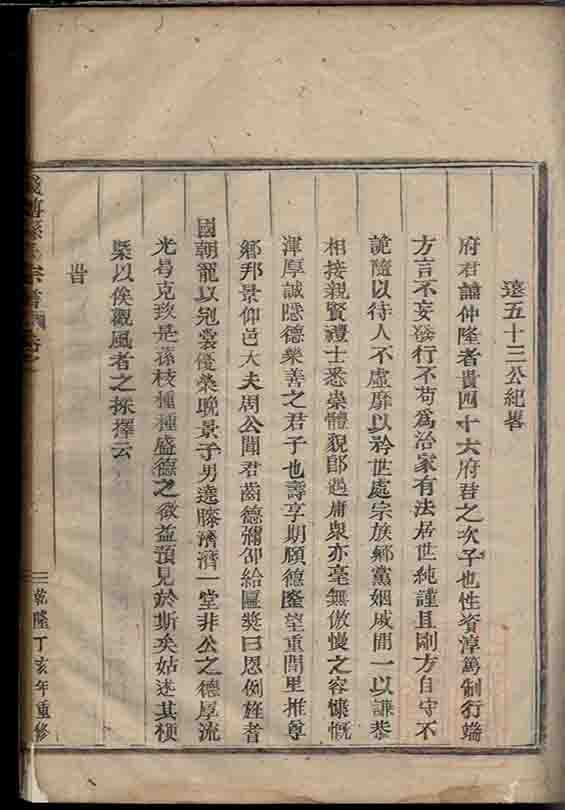 遠五十三公紀畧
府君諱仲隆者貴四十六府君之次子也性資淳篤制行端
方言不妄發行不苟為治家有法居世純謹且剛方自守不
詭隨以待人不虛靡以矜世處宗族鄉黨姻戚間一以謙恭
相接親賢禮士悉崇體貌即遇庸衆亦毫無傲慢之容慷慨
渾厚誠隱德樂善之君子也壽享期頤德隆望重閭里推尊
鄉邦景仰邑大夫周公聞君齒德彌卲給匾獎曰恩例旌者
國朝寵以冠裳優榮晚景子男遶膝濟濟一堂非公之德厚流
光曷克致是孫枝種種盛德之徵益預見於斯矣姑述其梗
槩以俟觀風者之採擇云
旹
宗譜
乾隆丁亥年重修